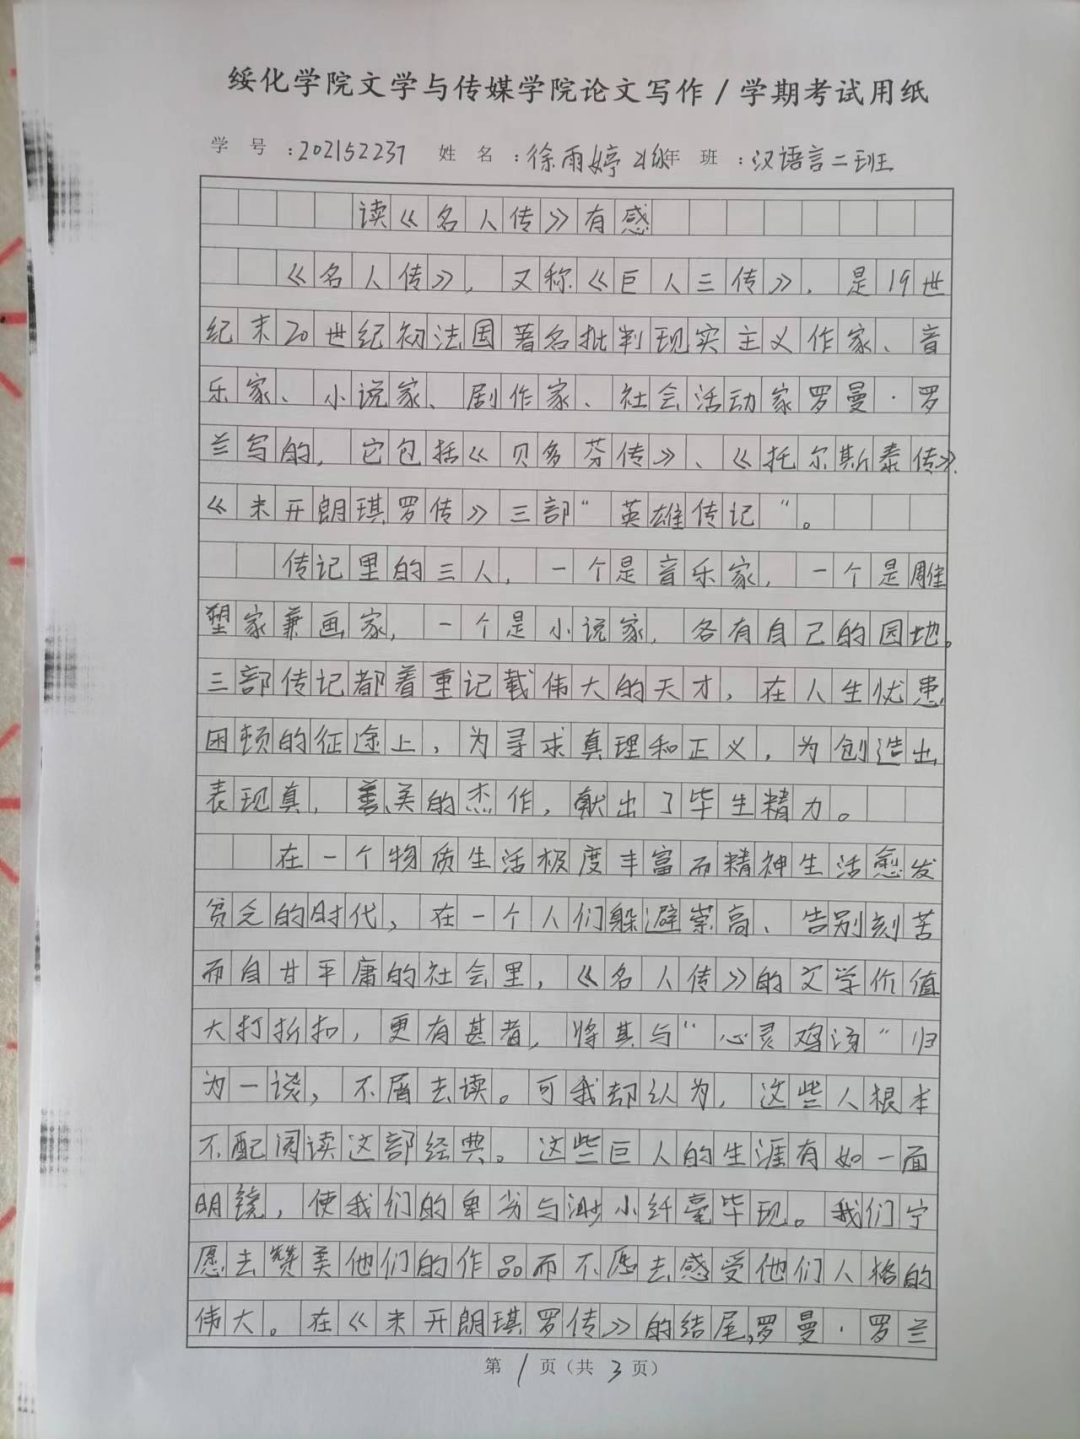 绥化学院文学与传媒学院论文写作/学期考试用纸
学 号:202152237 姓 名:徐雨婷 年 班:汉语言二班
读《名人传》有感
《名人传》,又称《巨人三传》,是19世
纪末20世纪初法国著名批判现实主义作家、音
乐家、小说家、剧作家、社会活动家罗曼·罗
兰写的,它包括《贝多芬传》、《托尔斯泰传》、
《米开朗琪罗传》三部“英雄传记”。
传记里的三人,一个是音乐家,一个是雕
塑家兼画家,一个是小说家,各有自己的园地。
三部传记都着重记载伟大的天才,在人生忧患、
困顿的征途上,为寻求真理和正义,为创造出
表现真,善、美的杰作,献出了毕生精力。
在一个物质生活极度丰富而精神生活愈发
贫乏的时代,在一个人们躲避崇高、告别刻苦
而自甘平庸的社会里,《名人传》的文学价值
大打折扣,更有甚者,将其与“心灵鸡汤”归
为一谈,不屑去读。可我却认为,这些人根本
不配阅读这部经典。这些巨人的生涯有如一面
明镜,使我们的卑劣与渺小纤毫毕现。我们宁
愿去赞美他们的作品而不愿去感受他们人格的
伟大。在《米开朗琪罗传》的结尾,罗曼·罗兰
第1页(共3页)